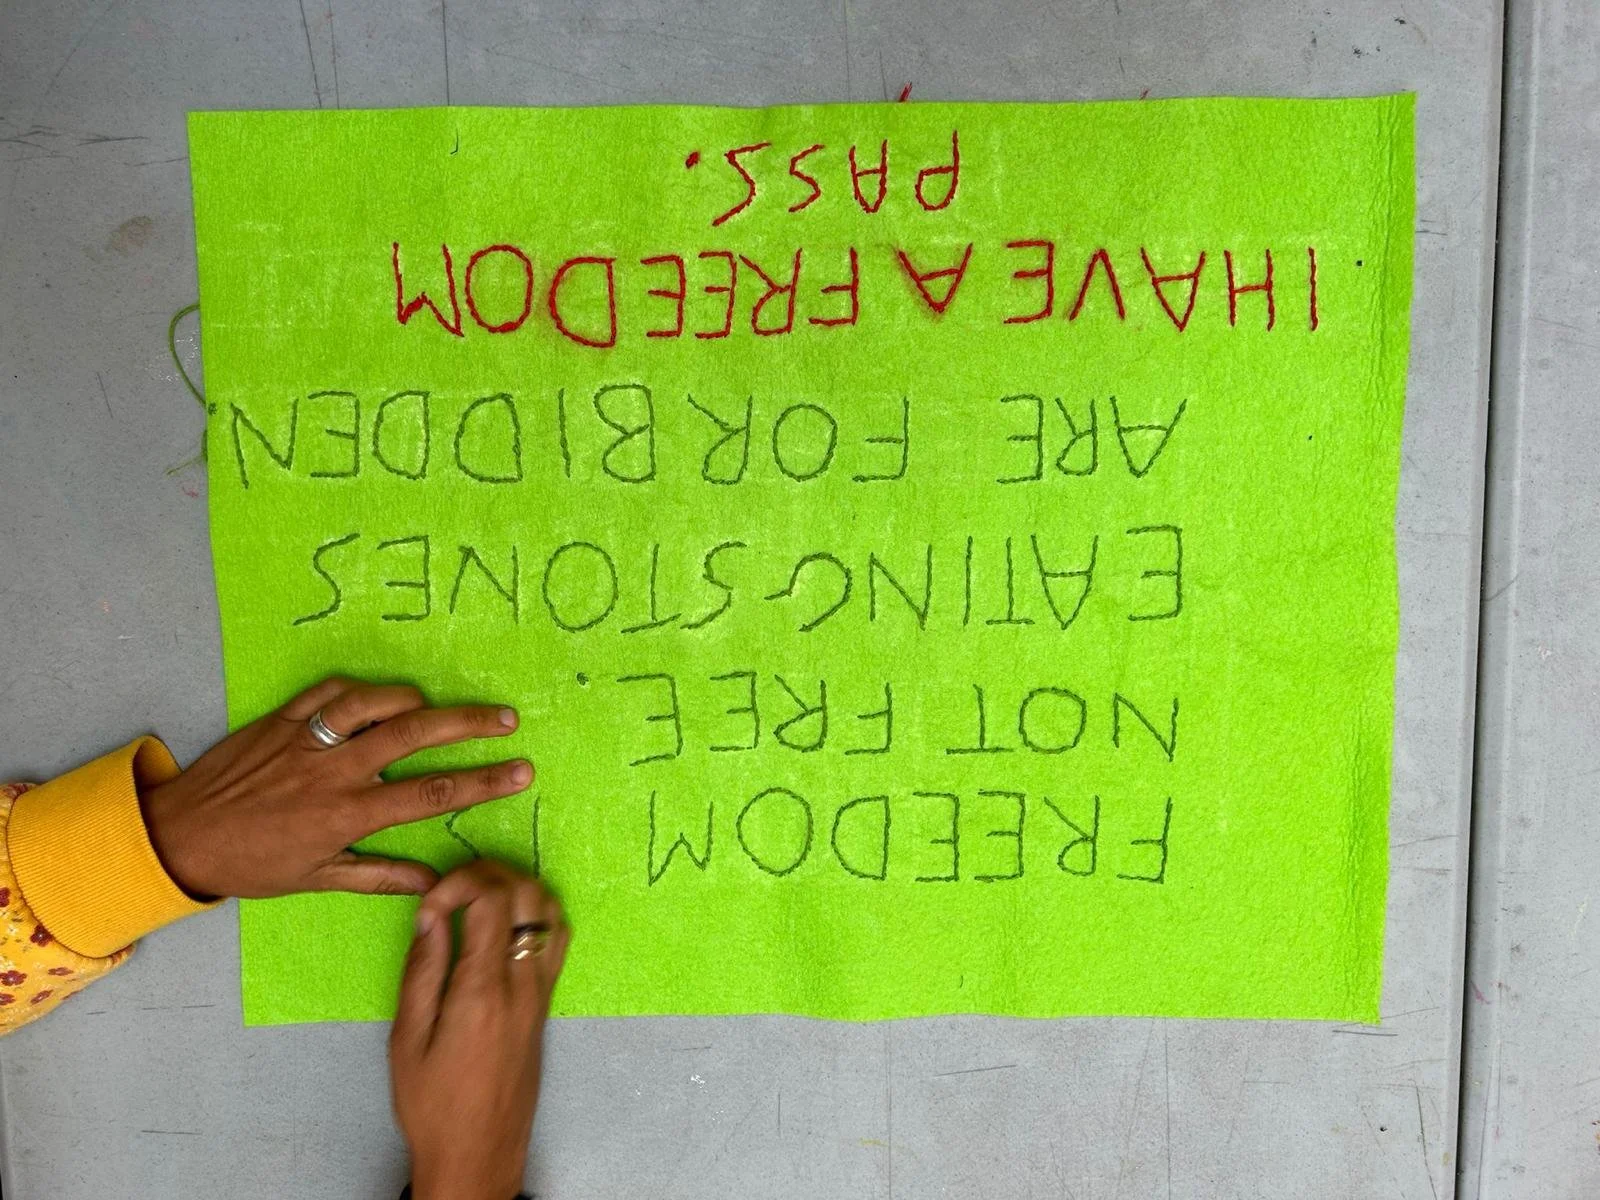 FREEDOM IS
NOT FREE.
EATING STONES
ARE FORBIDDEN.
I HAVE A FREEDOM
PASS.